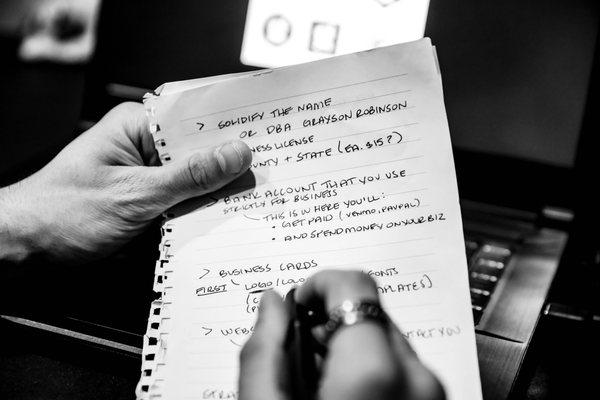 > SOLIDIFY THE NAME
OR DBA GRAYSON ROBINSON
NESS LICENSE
UNTY + STATE (EA. $15?)
> BANK ACCOUNT THAT YOU USE
STRICTLY FOR BUSINESS
THIS IN HERE YOU'LL:
• GET PAID (VENMO, PAYPAL)
• AND SPEND MONEY ON YOUR BIZ
> BUSINESS CARDS
FIRST LOGO/ FONTS
PLATES)
> WEB TACT YOU
STRA